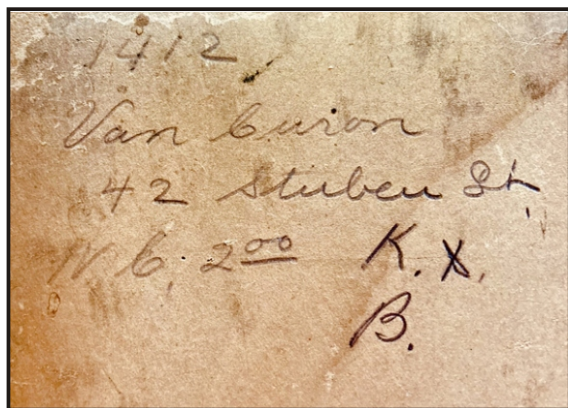 1412
Van Curon
42 Stuben St
N C. 2⁰⁰ K. X.
B.